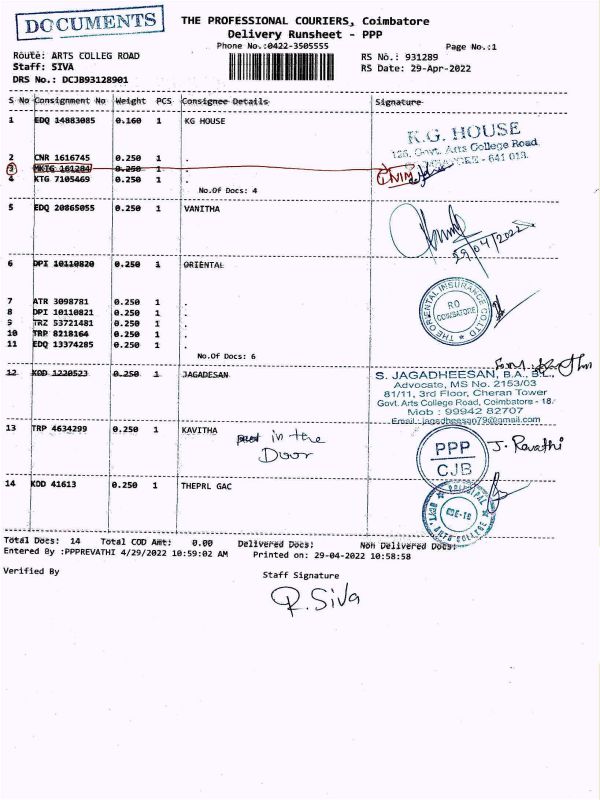 DOCUMENTS
THE PROFESSIONAL COURIERS, Coimbatore
Delivery Runsheet - PPP
Phone No.:0422-3505555
Page No.:1
Route: ARTS COLLEG ROAD
RS No.: 931289
Staff: SIVA
RS Date: 29-Apr-2022
DRS No.: DCJB93128901
S No Consignment No Weight PCS Consignee Details Signature
1 EDQ 14883085 0.160 1 KG HOUSE
K.G. HOUSE
Govt. Arts College Road,
- 641 018.
2 CNR 1616745 0.250 1 .
3 MKTG 161284 0.250 1 .
4 KTG 7105469 0.250 1 .
No.Of Docs: 4
5 EDQ 20865055 0.250 1 VANITHA
29/04/2022
6 DPI 10110820 0.250 1 ORIENTAL
THE ORIENTAL INSURANCE CO LTD
RO
COIMBATORE
7 ATR 3098781 0.250 1 .
8 DPI 10110821 0.250 1 .
9 TRZ 53721481 0.250 1 .
10 TRP 8218164 0.250 1 .
11 EDQ 13374285 0.250 1 .
No.Of Docs: 6
12 KDD 1220523 0.250 1 JAGADESAN
S. JAGADHEESAN, B.A., B.L.,
Advocate, MS No. 2153/03
81/11, 3rd Floor, Cheran Tower
Govt. Arts College Road, Coimbatore - 18.
Mob : 99942 82707
Email : jagadheesan79@gmail.com
13 TRP 4634299 0.250 1 KAVITHA
in the
Door
PPP
CJB
J. Revathi
14 KDD 41613 0.250 1 THEPRL GAC
PRINCIPAL
GOVT. ARTS COLLEGE
CBE-18
Total Docs: 14 Total COD Amt: 0.00 Delivered Docs: Non Delivered Docs:
Entered By :PPPREVATHI 4/29/2022 10:59:02 AM Printed on: 29-04-2022 10:58:58
Verified By
Staff Signature
R. Siva